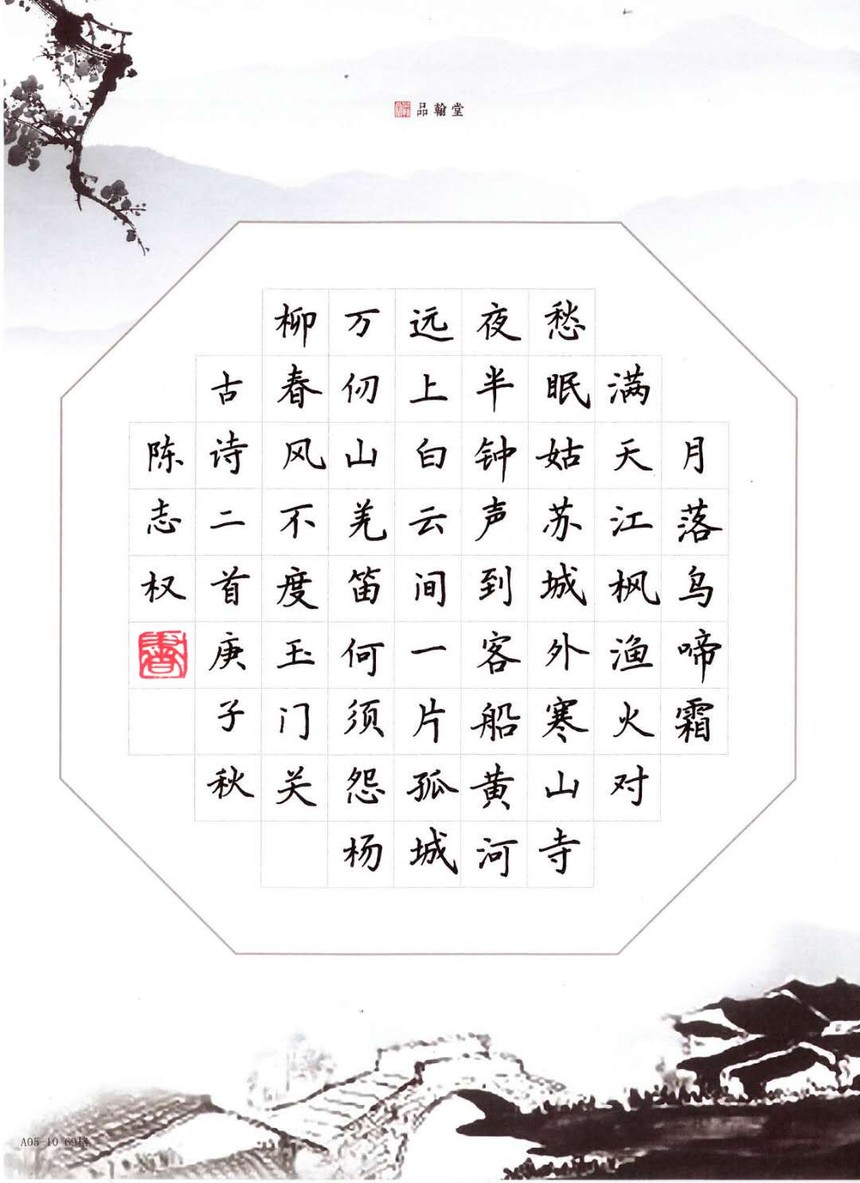 品翰堂
月落鸟啼霜
满天江枫渔火对
愁眠姑苏城外寒山寺
夜半钟声到客船黄河
远上白云间一片孤城
万仞山羌笛何须怨杨
柳春风不度玉门关
古诗二首庚子秋
陈志权
A05-10 69格